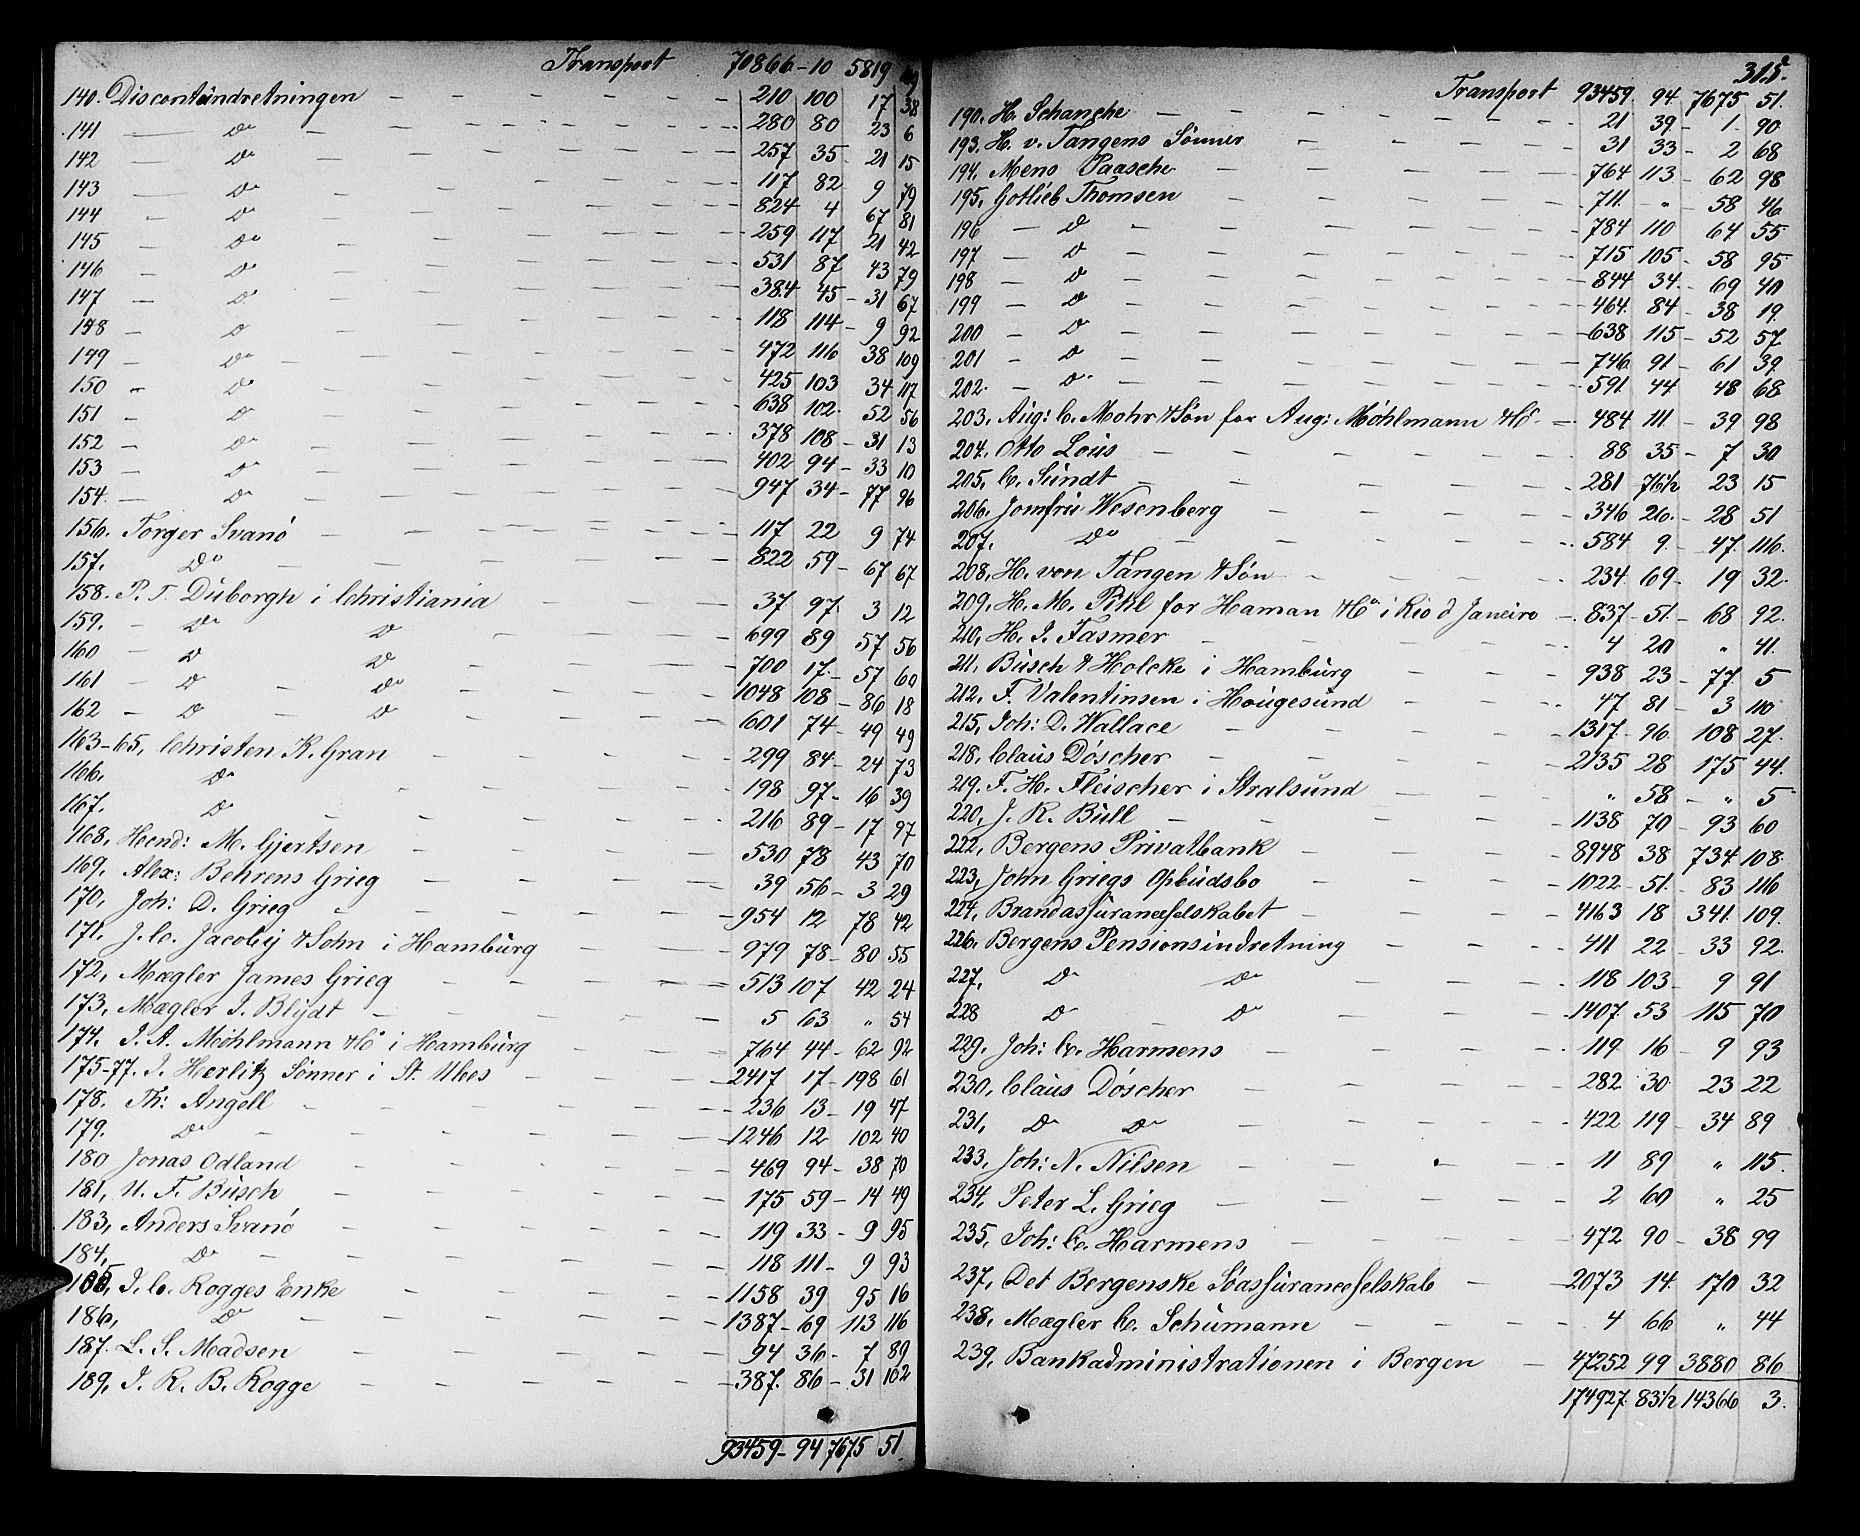 Transport 70866 - 10 5819 49
140. Discontoindretningen - 210 100 17 38
141 — Do - 280 80 23 6
142 — Do - 257 35 - 21 15
143 — Do - 117 82 9 79
144 - Do - 824 4 67 81
145 - Do - 259 117 21 42
146 - Do - 531 87 43 79
147 - Do - 384 45 - 31 67
148 - Do - 118 114 - 9 92
149 - Do - 472 116 38 109
150 - Do - 425 103 34 117
151 - Do - 638 102 52 56
152 - Do - 378 108 - 31 13
153 - Do - 402 94 - 33 10
154 - Do - 947 34 - 77 96
156. Torger Svanö - 117 22 9 74
157. Do - 822 59 - 67 67
158. P. T. Duborgh i Christiania - 37 97 3 12
159. - Do Do - 699 89 57 56
160 - Do Do - 700 17 - 57 60
161 - Do - Do - 1048 108 - 86 18
162 - Do - Do - 601 74 - 49 49
163-65, Christen K. Gran - 299 84 - 24 73
166, Do - 198 97 - 16 39
167. Do - 216 89 - 17 97
168, Hend: M. Gjertsen - 530 78 43 70
169, Alex: Behrens Grieg - 39 56 - 3 29
170, Joh: D. Grieg - 954 12 78 42
171. J. C. Jacoby & Sohn i Hamburg - 979 78 - 80 55
172, Mægler James Grieg - 513 107 42 24
173, Mægler J. Blydt - 5 63 " 54
174. J. A. Möhlmann & Co i Hamburg - 764 44 - 62 92
175-77. J. Herlitz Sønner i St. Ubes - 2417 17 - 198 61
178. Th: Angell - 236 13 - 19 47
179. Do - 1246 12 102 40
180 Jonas Odland - 469 94 - 38 70
181, U. F. Busch - 175 59 - 14 49
183, Anders Svanö - 119 33 - 9 95
184, Do - 118 111 - 9 93
185, J. C. Rogges Enke - 1158 39 95 16
186, Do - 1387 - 69 113 116
187. L. S. Madsen - 94 36 - 7 89
189, J. R. B. Rogge - 387. 86 - 31 102
93459 - 94 7675 51
315.
Transport 93459. 94. 7675 51.
190. H. Schanche - 21 39 - 1 90
193. H. v. Tangens Sønner - 31 33 - 2 68
194. Mens Paasche - 764 113 - 62 98
195, Gotlieb Thomsen - 711. " - 58 46
196 - Do - 784 110 64 55
197 - Do - 715 105 - 58 95
198 - Do - 844 34 - 69 40
199 - Do - 464. 84 - 38 19.
200 - Do - 638 115 - 52 57
201 - Do - 746 91 - 61 39
202. - Do - 591 44 48 68
203. Aug: C. Mohr & Søn for Aug: Möhlmann & Co. - 484 111 - 39 98
204. Otto Lous - 88 35 - 7 30
205. C. Sundt - 281 76½ 23 15
206. Jomfru Wesenberg - 346 26. - 28 51
207. Do - 584 9. - 47. 116.
208, H. von Tangen & Søn - 234 69 - 19 32.
209. H. M. Pihl for Haman & Co i Rio d Janeiro - 837 - 51. - 68 92.
210, H. J. Fasmer - 4 20 " 41.
211, Busch & Holcke i Hamburg - 938 23 - 77. 5
212, F. Valentinsen i Hougesund - 47 81 - 3 110
215, Joh: D. Wallace - 1317. 96 108 27.
218. Claus Döscher - 2135 28 175 44.
219. F. H. Fleischer i Stralsund - " 58 - " 5
220, J. R. Bull - 1138 70 - 93 60
222, Bergens Privatbank - 8948 38 734 108.
223, John Griegs Opbudsbo - 1022 - 51. - 83 116
224, Brandassuranceselskabet - 4163 18 341. 109.
226. Bergens Pensionsindretning - 411 22 - 33 92.
227, Do Do - 118 103 - 9 91
228 Do - Do - 1407. 53 115 70
229. Joh: C. Harmens - 119 16 - 9 93
230, Claus Döscher - 282 30 23 22
231, Do Do - 422 119 - 34 89
233, Joh: N. Nilsen - 11 89 " 115.
234, Peter L. Grieg - 2 60 " 25
235, Joh: C. Harmens - 472 90 - 38 99
237, Det Bergenske Søassuranceselskab - 2073 14. 170 32
238, Mægler C. Schumann - 4 66 " 44
239, Bankadministrationen i Bergen - 47252 99 3880 86
174927. 83½ 14366 3.